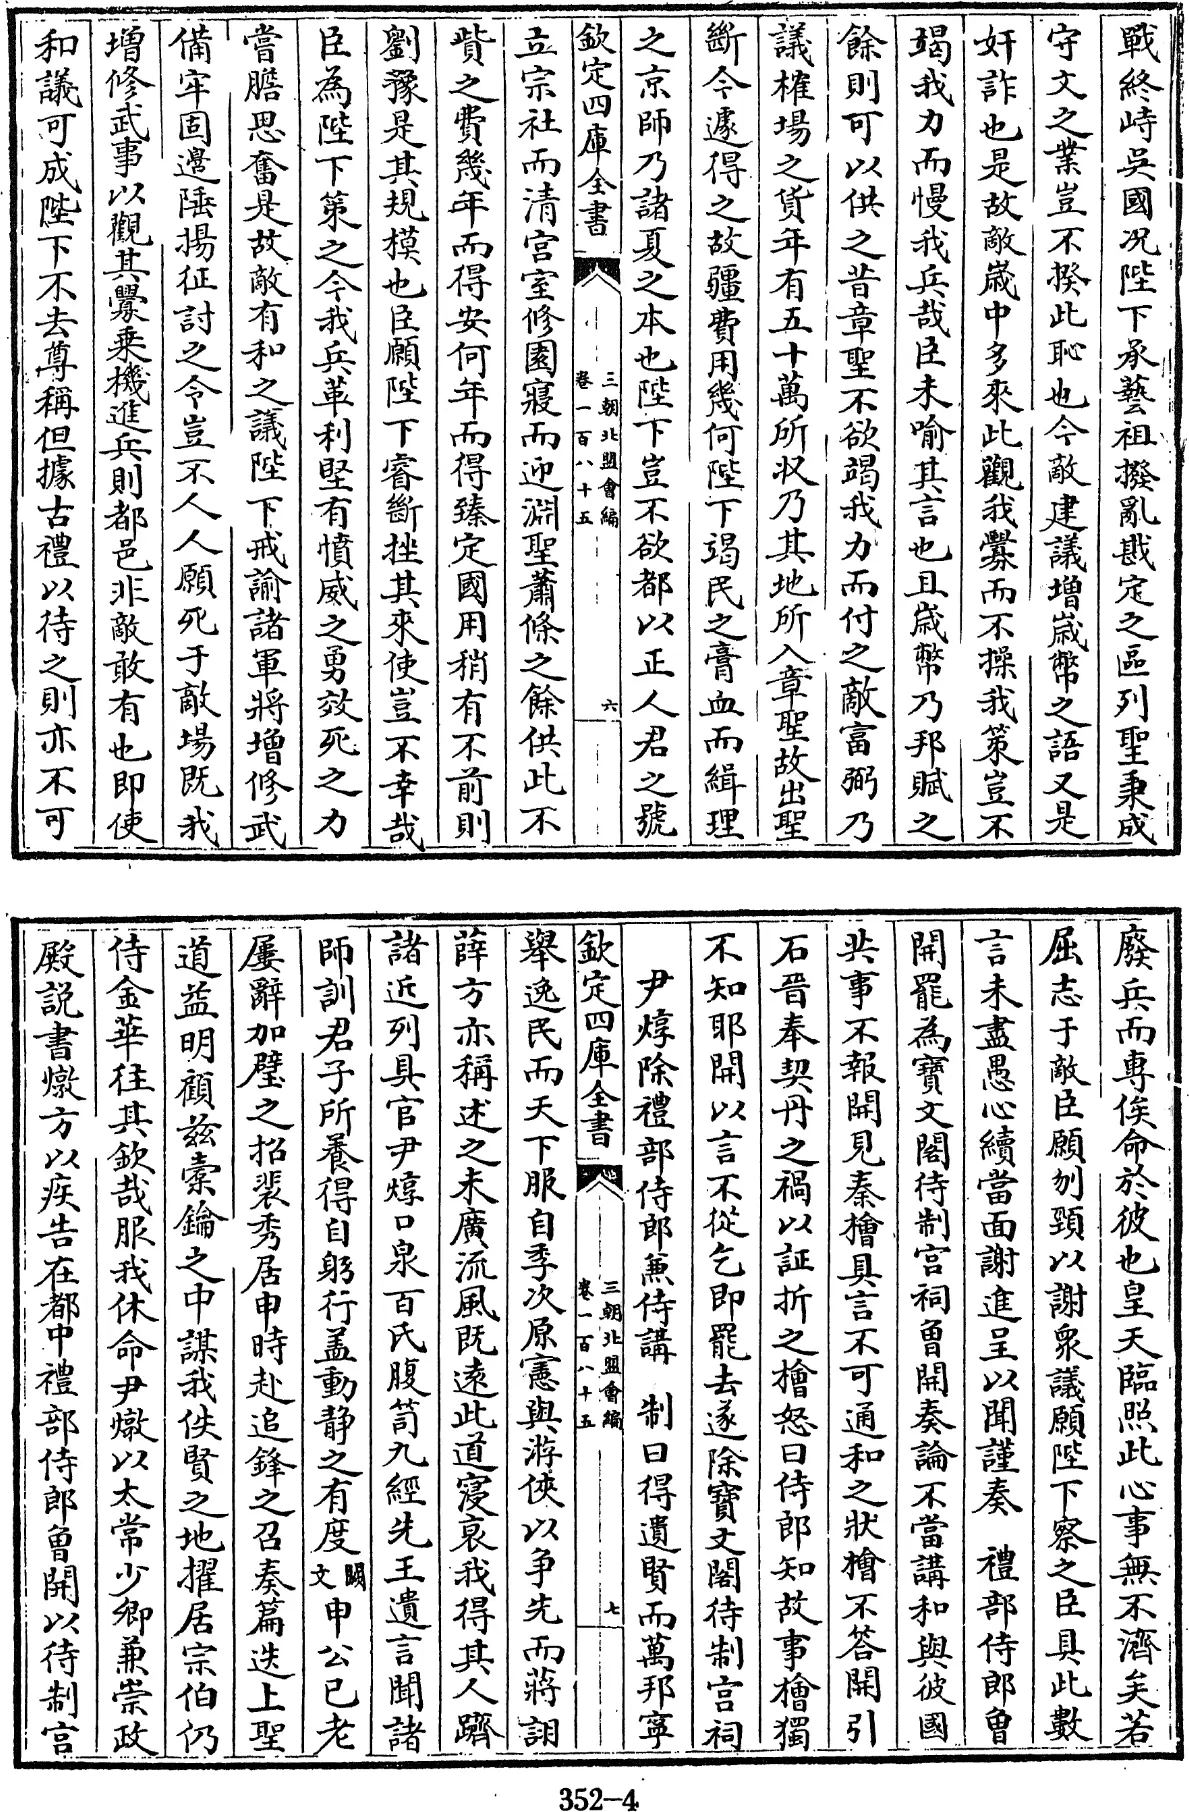 戰終峙吳國况陛下承藝祖撥亂戡定之區列聖秉成
守文之業豈不揆此恥也今敵建議增歳幣之語又是
奸詐也是故敵歳中多來此觀我釁而不操我策豈不
竭我力而慢我兵哉臣未喻其言也且歳幣乃邦賦之
餘則可以供之昔章聖不欲竭我力而付之敵富弼乃
議榷場之貨年有五十萬所收乃其地所入章聖故出聖
斷今遽得之故疆費用幾何陛下竭民之膏血而緝理
之京師乃諸夏之本也陛下豈不欲都以正人君之號
欽定四庫全書
三朝北盟會編
卷一百八十五
六
立宗社而清宫室修園寢而迎淵聖蕭條之餘供此不
貲之費幾年而得安何年而得臻定國用稍有不前則
劉豫是其規模也臣願陛下睿斷挫其來使豈不幸哉
臣為陛下策之今我兵革利堅有憤威之勇效死之力
嘗膽思奮是故敵有和之議陛下戒諭諸軍將增修武
備牢固邊陲揚征討之令豈不人人願死于敵場既我
增修武事以觀其釁乘機進兵則都邑非敵敢有也即使
和議可成陛下不去尊稱但據古禮以待之則亦不可
廢兵而專俟命於彼也皇天臨照此心事無不濟矣若
屈志于敵臣願刎頸以謝衆議願陛下察之臣具此數
言未盡愚心續當面謝進呈以聞謹奏　禮部侍郎曾
開罷為寶文閣待制宫祠曾開奏論不當講和與彼國
共事不報開見秦檜具言不可通和之狀檜不答開引
石晉奉契丹之禍以証折之檜怒曰侍郎知故事檜獨
不知耶開以言不從乞即罷去遂除寶文閣待制宫祠
尹焞除禮部侍郎兼侍講　制曰得遺賢而萬邦寧
欽定四庫全書
三朝北盟會編
卷一百八十五
七
舉逸民而天下服自季次原憲與游俠以爭先而蔣詡
薛方亦稱述之未廣流風既遠此道寖衰我得其人躋
諸近列具官尹焞口泉百氏腹笥九經先王遺言聞諸
師訓君子所養得自躬行盖動静之有度闕文申公已老
屢辭加璧之招裴秀居申時赴追鋒之召奏篇迭上聖
道益明顧兹橐鑰之中諜我佚賢之地擢居宗伯仍
侍金華往其欽哉服我休命尹燉以太常少卿兼崇政
殿説書燉方以疾告在都中禮部侍郎曾開以待制宫
352-4